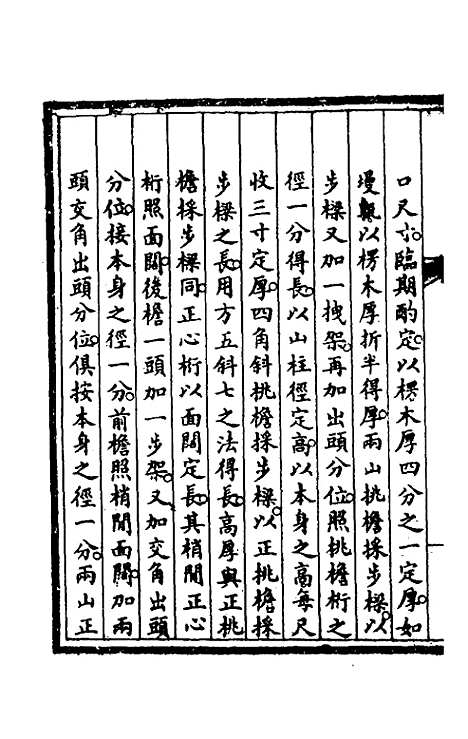 口尺寸。臨期酌定。以楞木厚四分之一定厚。如
墁甎以楞木厚折半得厚。兩山挑檐採步樑。以
步樑又加一拽架。再加出頭分位。照挑檐桁之
徑一分得長。以山柱徑定高。以本身之高每尺
收三寸定厚。四角斜挑檐採步樑。以正挑檐採
步樑之長。用方五斜七之法得長。高厚與正挑
檐採步樑同。正心桁以面闊定長。其梢間正心
桁照面闊。後檐一頭加一步架。又加交角出頭
分位。按本身之徑一分。前檐照梢間面闊。加兩
頭交角出頭分位。俱按本身之徑一分。兩山正